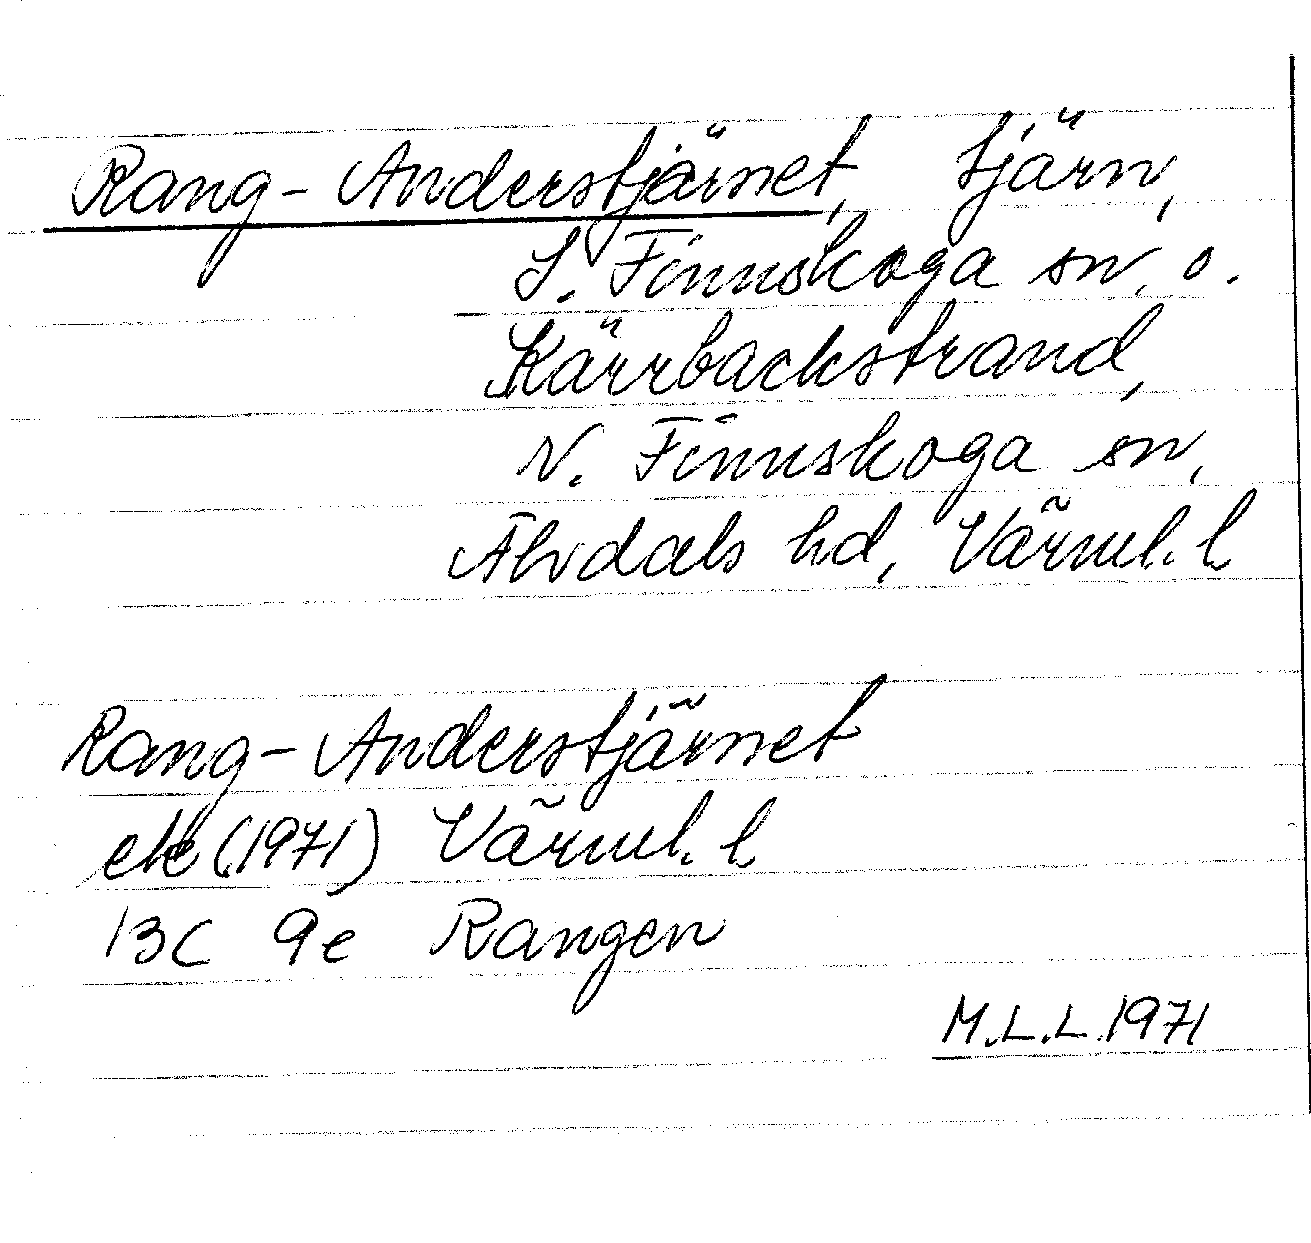 Rang-Anderstjärnet, tjärn,
S. Finnskoga sn. o.
Kärrbackstrand,
N. Finnskoga sn,
Älvdals hd, Värml. l
Rang-Anderstjärnet
ek (1971) Värml. l
13C 9e Rangen
M.L.L. 1971